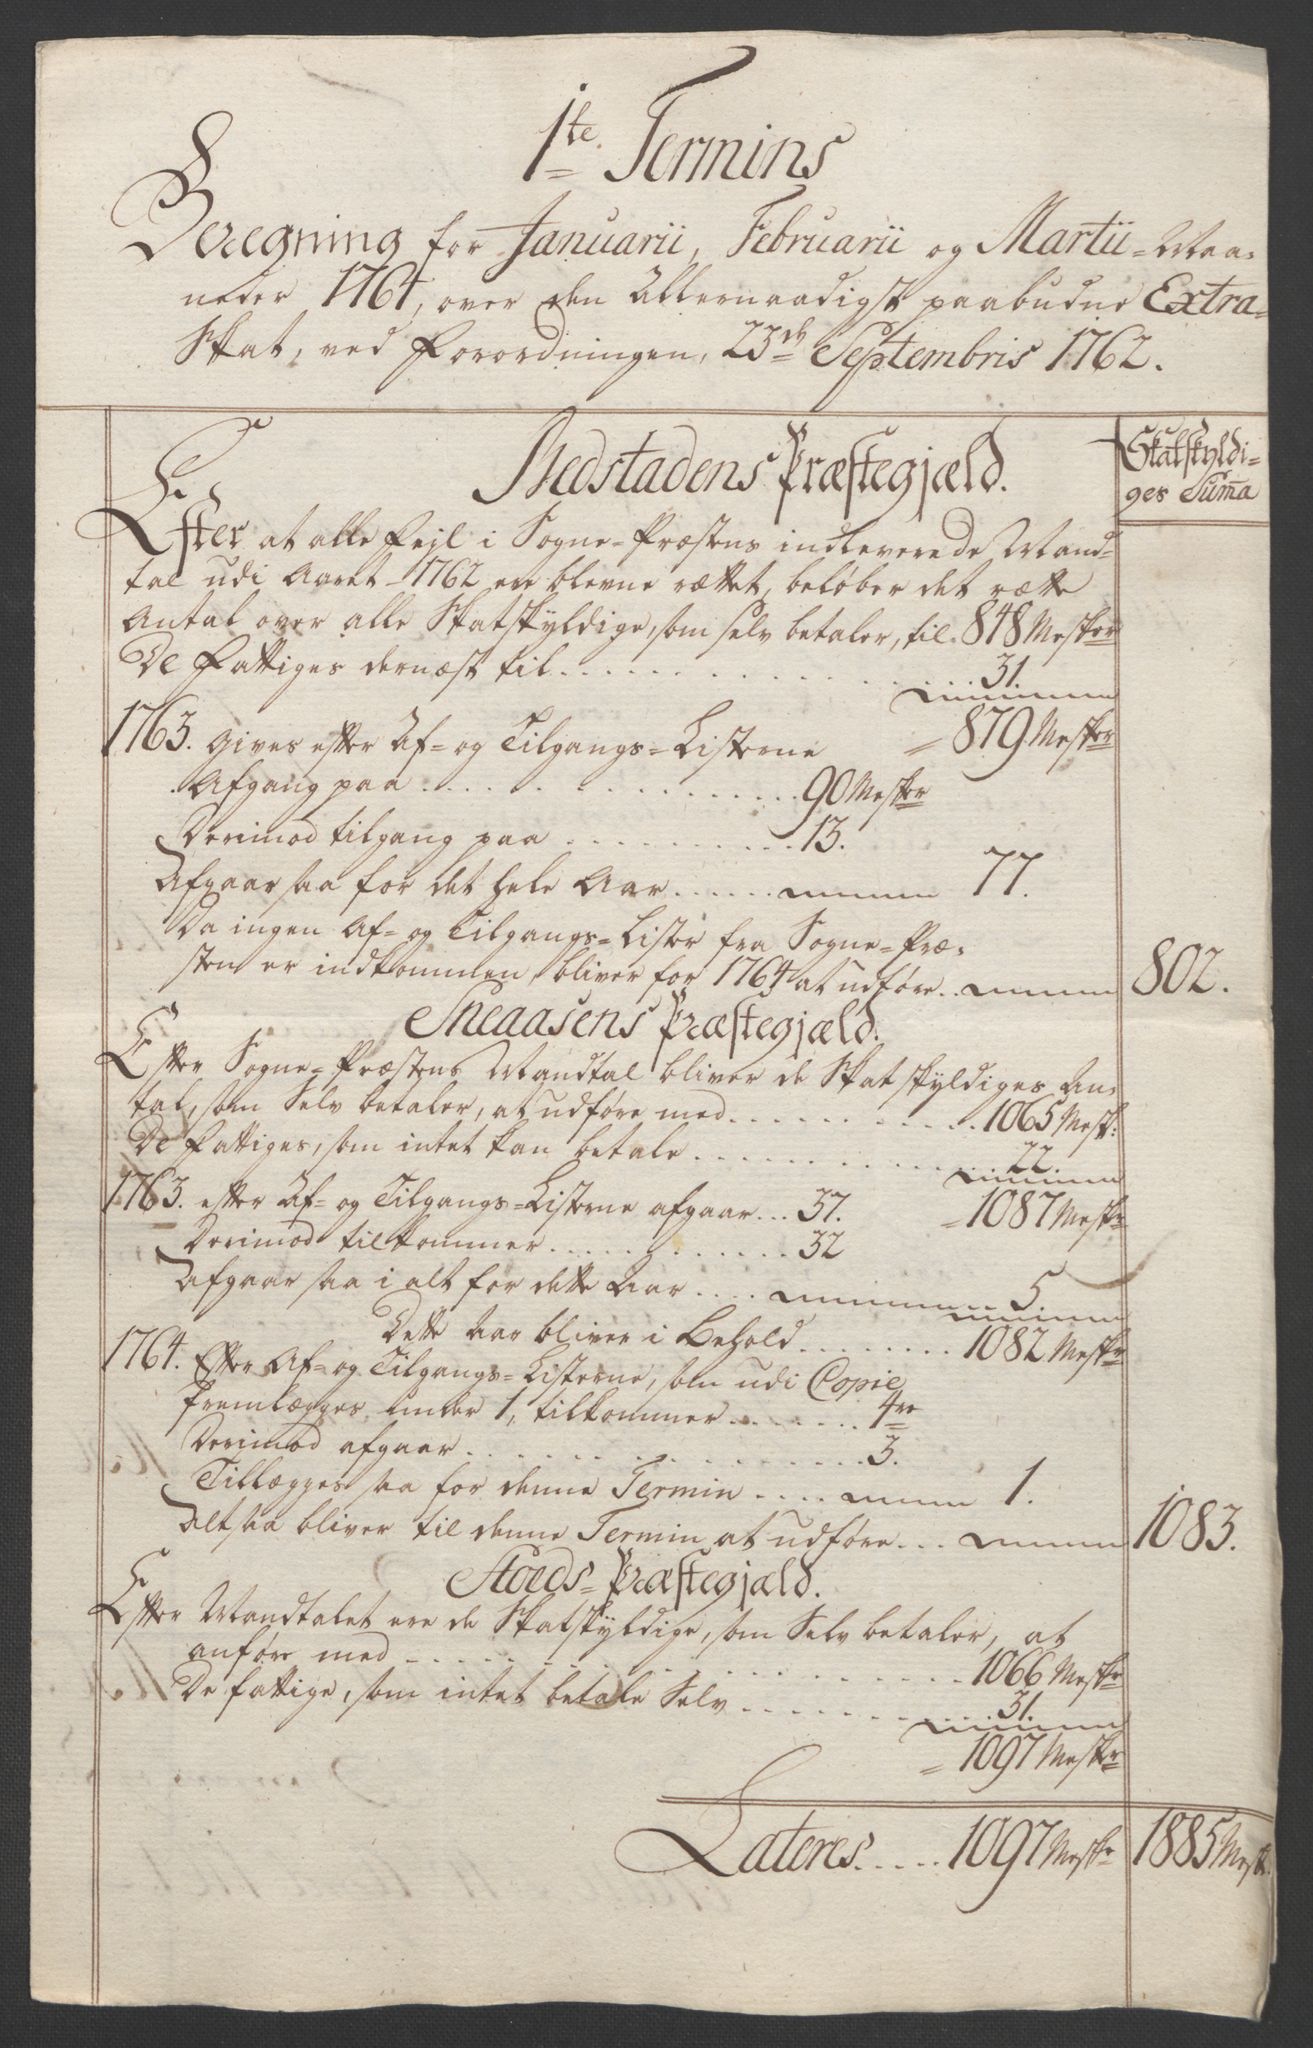 1te Termins
Beregning for Januarii, Februarii og Martii-Maa-
neder 1764, over den Allernaadigst paabudne Extra-
Skat, ved Forordningen, 23de Septembris 1762.
Skatskyldi-
ges Suma
Medstadens Præstegjæld.
Efter at alle Fejl i Sogne-Præstens indleverede Mand-
tal udi Aaret 1762 ere blevne rættet, beløber det rætte
Antal over alle Skatskyldige, som selv betaler, til. 848 Mskr
De Fattiges dernæst til . . . . . 31.
= 879 Mskr
1763. gives efter Af- og Tilgangs-Listerne
Afgang paa . . . . . 90 Mskr
Derimod tilgang paa . . . . . 13.
Afgaar saa for det hele Aar . . . . . 77.
Da ingen Af- og Tilgangs-Lister fra Sogne-Præ-
sten er indkommen, bliver for 1764 at udføre . . 802.
Sneaasens Præstegjæld.
Efter Sogne-Præstens Mandtal bliver de Skatskyldiges An-
tal, som Selv betaler, at udføre med . . . . . 1065 Mesk:
De Fattiges, som intet kan betale . . . . . 22.
1763. efter Af- og Tilgangs-Listerne afgaar . . . 37. = 1087 Meskr
Derimod tilkommer . . . . . 32
Afgaar saa i alt for dette Aar . . . . 5.
Dette Aar bliver i Behold . . . . . 1082 Meskr
1764. Efter Af- og Tilgangs-Listerne, som udi Copie
fremlægges under 1, tilkommer . . . . . 4re
Derimod afgaar . . . . . 3.
Tillægges saa for denne Termin . . . . 1.
Altsaa bliver til denne Termin at udføre . . . 1083.
Stoeds-Præstegjæld.
Efter Mandtalet ere de Skatskyldige, som Selv betaler, at
anføre med . . . . . 1066 Meskr
De fattige, som intet betale Selv . . . . . 31.
= 1097 Meskr
Lateres . . . . . 1097 Meskr 1885 Mesk.